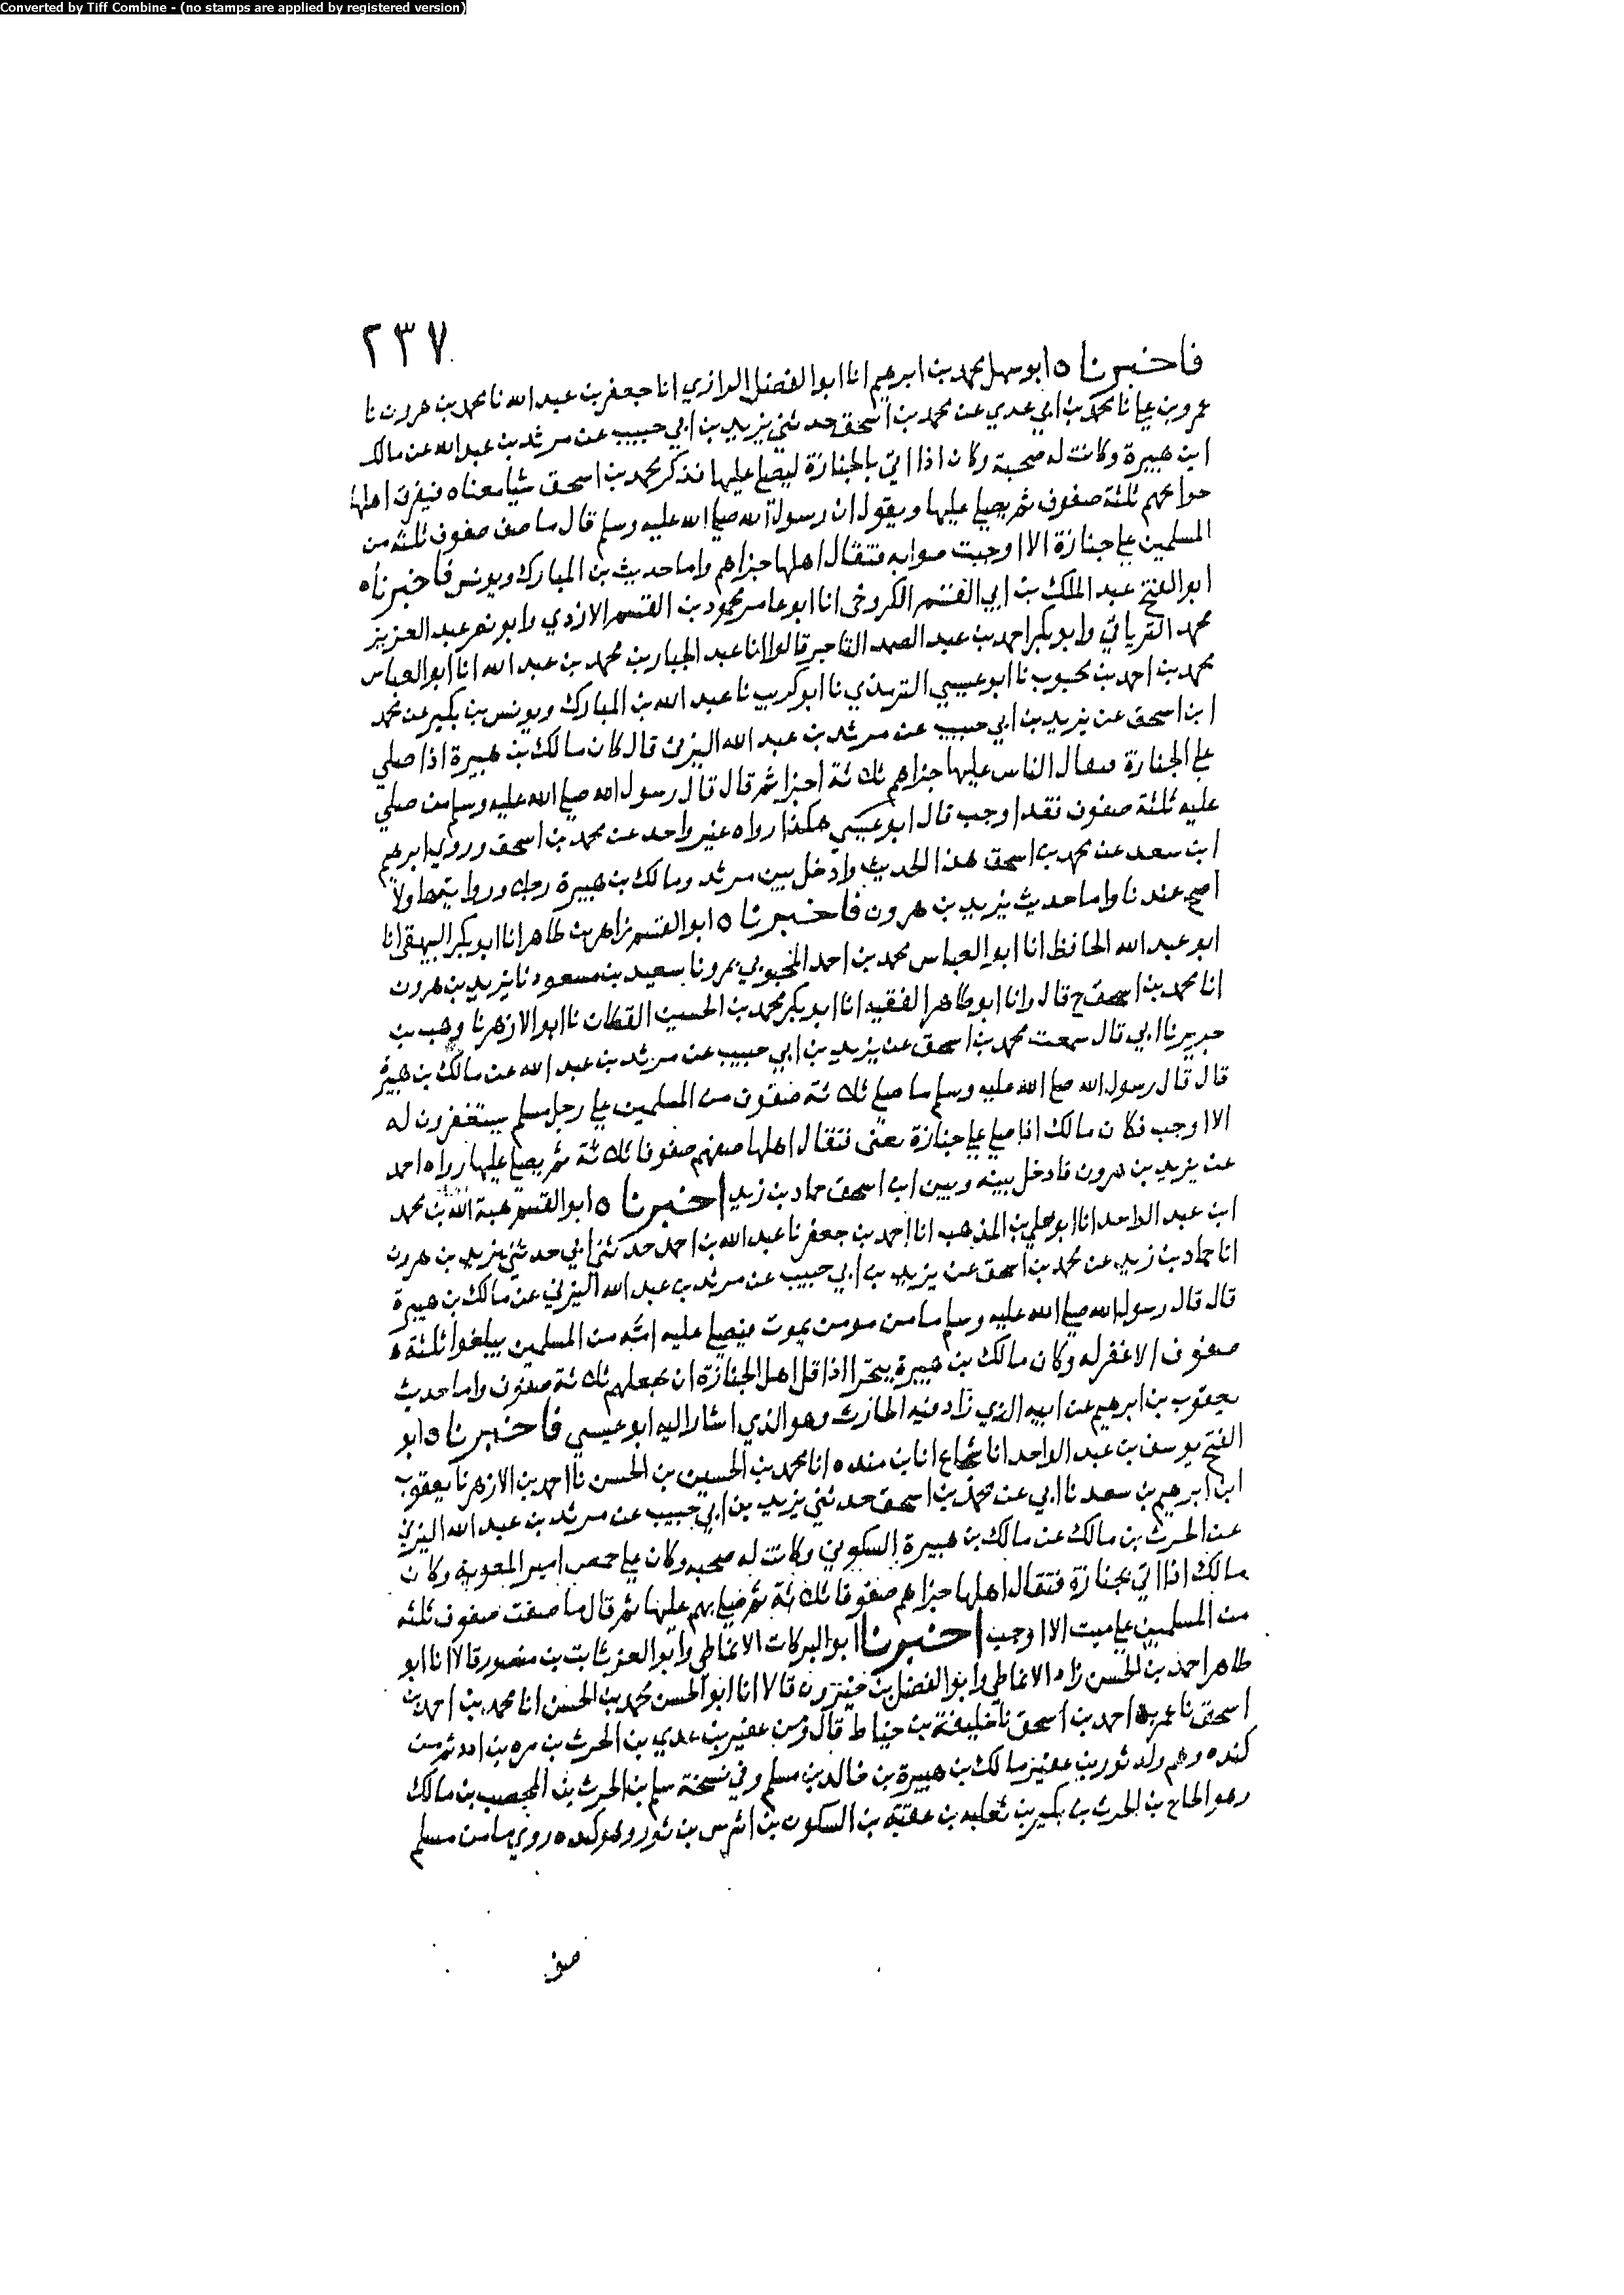 Converted by Tiff Combine - (no stamps are applied by registered version)
٢٣٧
فاخبرناه ابو سهل محمد بن ابرهيم انا ابو الفضل الرازي انا جعفر بن عبد الله نا محمد بن هرون نا
عمرو بن علي نا محمد بن ابي عدي عن محمد بن اسحق حدثني يزيد بن ابي حبيب عن مرثد بن عبد الله عن مالك
ابن هبيرة وكانت له صحبة وكان اذا اتي بالجنازة ليصلي عليها فذكر محمد بن اسحق شيا معناه اهلها
ثلثة صفوف ثم يصلي عليها ويقول ان رسول الله صلى الله عليه وسلم قال ما صف صفوف ثلثه من
المسلمين علي جنازة الا اوجبت فتقال اهلها جزاهم واما حديث بن المبارك ويونس فاخبرناه
ابو الفتح عبد الملك بن ابي القسم الكروخي انا ابو عامر محمود بن القسم الازدي وابو نصر عبد العزيز
محمد الترياقي وابو بكر احمد بن عبد الصمد التاجر قالوا انا عبد الجبار بن محمد بن عبد الله انا ابو العباس
محمد بن احمد بن محبوب نا ابو عيسي الترمذي نا ابو كريب نا عبد الله بن المبارك ويونس بن بكير عن محمد
ابن اسحق عن يزيد بن ابي حبيب عن مرثد بن عبد الله اليزني قال كان مالك بن هبيرة اذا صلي
علي الجنازة فتقال الناس عليها جزاهم ثلاثة اجزا ثم قال قال رسول الله صلي الله عليه وسلم من صلي
عليه ثلثة صفوف فقد اوجب قال ابو عيسي هكذا رواه غير واحد عن محمد بن اسحق وروي ابرهيم
ابن سعد عن محمد بن اسحق هذا الحديث وادخل بين مرثد ومالك بن هبيرة رجلا ورواية هاولا
اصح عندنا واما حديث يزيد بن هرون فاخبرناه ابو القسم زاهر بن طاهر انا ابو بكر البيهقي انا
ابو عبد الله الحافظ انا ابو العباس محمد بن احمد المحبوبي بمرو نا سعيد بن مسعود نا يزيد بن هرون
انا محمد بن اسحق ح قال وانا ابو طاهر الفقيه انا ابو بكر محمد بن الحسين القطان نا ابو الازهر نا وهب بن
جرير نا ابي قال سمعت محمد بن اسحق عن يزيد بن ابي حبيب عن مرثد بن عبد الله عن مالك بن هبيرة
قال قال رسول الله صلي الله عليه وسلم ما صلي ثلاثة صفوف من المسلمين علي رجل مسلم يستغفرون له
الا اوجب فكان مالك اذا صلي علي جنازة يعني فتقال اهلها صفهم صفوفا ثلاثة ثم يصلي عليها رواه احمد
عن يزيد بن هرون فادخل بينه وبين ابن اسحق حماد بن زيد اخبرناه ابو القسم هبة الله بن محمد
ابن عبد الواحد انا ابو علي بن المذهب انا احمد بن جعفر نا عبد الله بن احمد حدثني ابي حدثني يزيد بن هرون
انا حماد بن زيد عن محمد بن اسحق عن يزيد بن ابي حبيب عن مرثد بن عبد الله اليزني عن مالك بن هبيرة
قال قال رسول الله صلي الله عليه وسلم ما من مومن يموت فيصلي عليه امة من المسلمين يبلغوا ثلثة
صفوف الا غفر له وكان مالك بن هبيرة يتحرا اذا قل اهل الجنازة ان يجعلهم ثلاثة صفوف واما حديث
يعقوب بن ابرهيم عن ابيه الذي زاد فيه الحارث وهو الذي اشار اليه ابو عيسي فاخبرناه ابو
الفتح يوسف بن عبد الواحد انا شجاع انا بن منده انا محمد بن الحسين بن الحسن نا احمد بن الازهر نا يعقوب
ابن ابرهيم بن سعد نا ابي عن محمد بن اسحق حدثني يزيد بن ابي حبيب عن مرثد بن عبد الله اليزني
عن الحرث بن مالك عن مالك بن هبيرة السكوني وكانت له صحبه وكان علي حمص امير المعوية وكان
مالك اذا اتي بجنازة فتقال اهلها جزاهم صفوفا ثلاثة ثم صلي بهم عليها ثم قال ما صفت صفوف ثلثه
من المسلمين علي ميت الا اوجب اخبرنا ابو البركات الانماطي وابو العز ثابت بن منصور قالا انا ابو
طاهر احمد بن الحسن زاد الانماطي وابو الفضل بن خيرون قالا انا ابو الحسن محمد بن الحسن انا محمد بن احمد بن
اسحق نا عمر بن احمد بن اسحق نا خليفة بن خياط قال ومن عفير بن عدي بن الحرث بن مره بن ادد ثم من
كنده وهم ولد ثور بن عفير مالك بن هبيرة بن خالد بن مسلم وفي نسخة سلم بن الحرث بن المخصب بن مالك
وهو بن الحرث بن بكير بن ثعلبه بن عقبة بن السكون بن اشرس بن ثور وهو كنده روي ما من مسلم
صفو